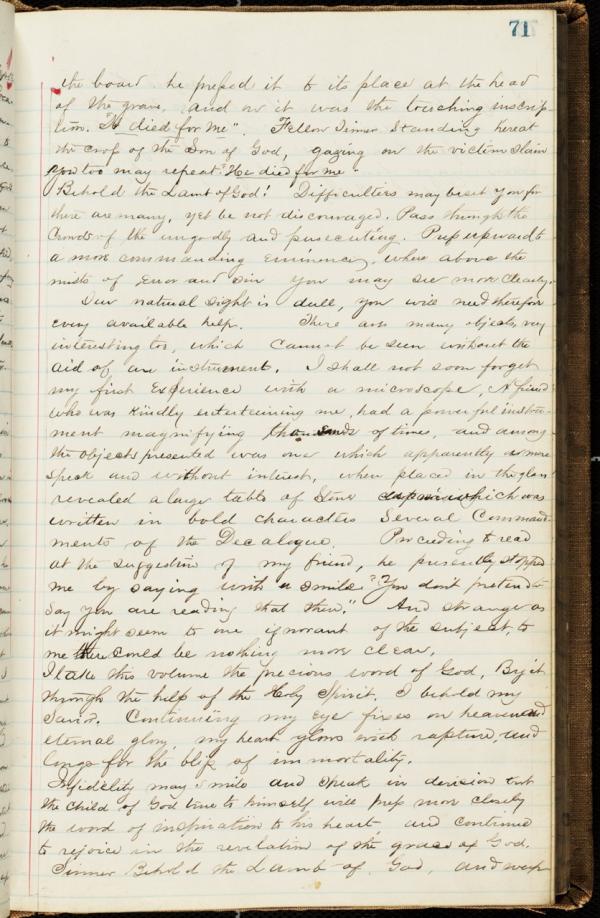 71
the board he pressed it to its place at the head
of the grave, and on it was the touching inscrip-
tion. "He died for me". Fellow Sinner Standing here at
the cross of the Son of God, gazing on the victim slain
you too may repeat "He died for me".
Behold the Lamb of God! Difficulties may beset you for
there are many, yet be not discouraged. Pass through the
Crowds of the ungodly and persecuting. Press upward to
a more commanding eminence, where above the
mists of Error and Sin you may see more clearly.
Our natural Sight is dull, you will need therefore
every available help. There are many objects, very
interesting too, which Cannot be seen without the
aid of an instrument. I shall not soon forget
my first Experience with a microscope, A friend
who was Kindly entertaining me, had a powerful instru-
ment magnifying thousands of times, and among
the objects presented was one which apparently a mere
speck and without interest, when placed in the glass
revealed a large table of Stone which was
written in bold characters Several Command-
ments of the Decalogue. Proceeding to read
at the suggestion of my friend, he presently stopped
me by saying with a smile "You dont pretend to
Say you are reading that then." And strange as
it might seem to one ignorant of the subject, to
me there could be nothing more clear,
I take this volume the precious word of God, By it
through the help of the Holy Spirit, I behold my
Savior. Continuing my Eye fixes on heaven and
eternal glory, my heart glows with rapture, and
longs for the bliss of immortality.
Infidelity may smile and speak in derision but
the Child of God true to himself will press more closely
the word of inspiration to his heart, and continue
to rejoice in the revelation of the grace of God.
Sinner Behold the Lamb of God, and weep